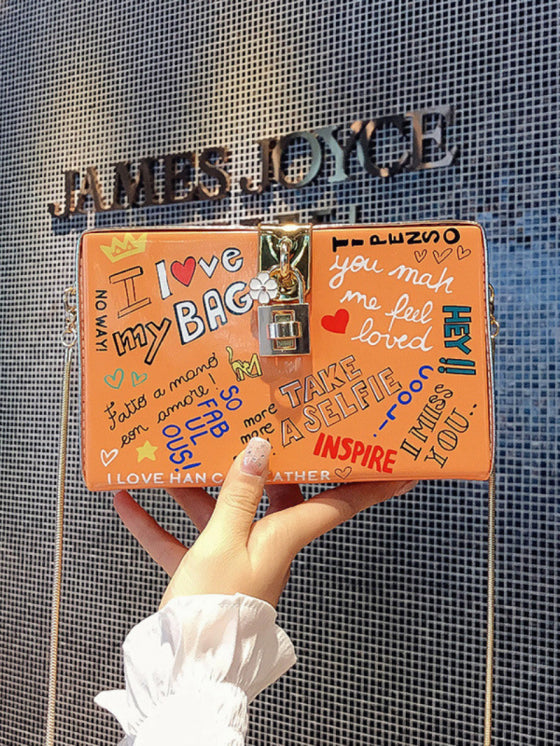 JAMES JOYCE
TIPENSO
I love
my BAG
NO WAY!
you mak
me feel
loved
HEY!!
Fatto a mano
con amore!
SO
FAB
UL
OUS!
more
more
TAKE
A SELFIE
LOOV
I MISS
YOU..
INSPIRE
I LOVE HAN EATHER